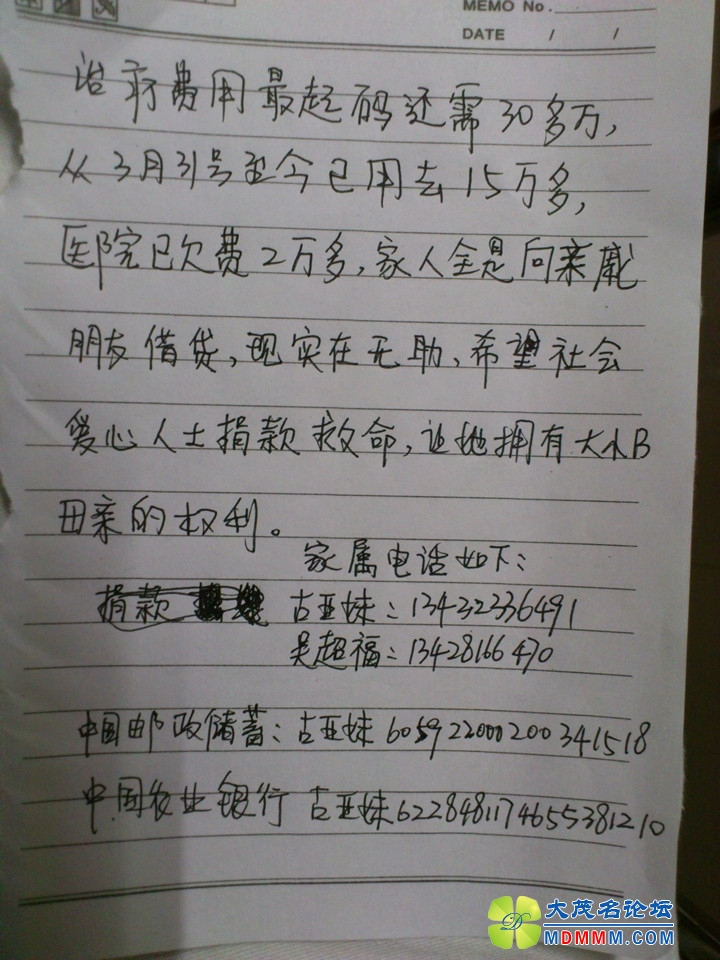 MEMO No.
DATE / /
治疗费用最起码还需30多万,
从3月31号至今已用去15万多,
医院已欠费2万多,家人全是向亲戚
朋友借贷,现实在无助,希望社会
爱心人士捐款救命,让她拥有
母亲的权利。
家属电话如下:
捐款 古亚妹:13432336491
吴超福:13428166470
中国邮政储蓄:古亚妹 605922000200341518
中国农业银行 古亚妹6228481174655381210
大茂名论坛
MDMMM.COM